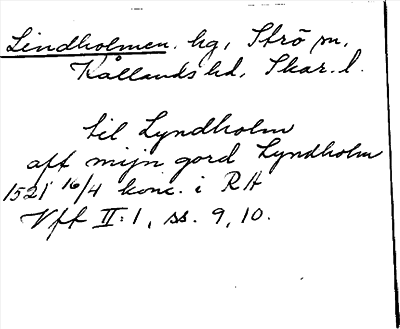 Lindholmen. hg, Strö sn,
Kållands hd, Skar. l.
til Lyndholm
aff mijn gord Lyndholm
1521 16/4 konc. i RA
Vff II:1, ss. 9, 10.